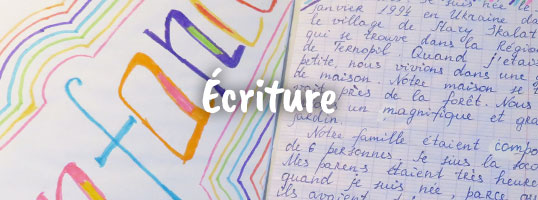 Écriture
Je suis née le
janvier 1994 en Ukraine
le village de Mary Skalat
qui se trouve dans la Région
de Ternopil. Quand j'étais
petite, nous vivions dans une
de maison. Notre maison se
près de la forêt. Nous
un magnifique et
jardin !
Notre famille étaient
de 6 personnes. Je suis la
Mes parents étaient très
quand je suis née, parce
ils avaient